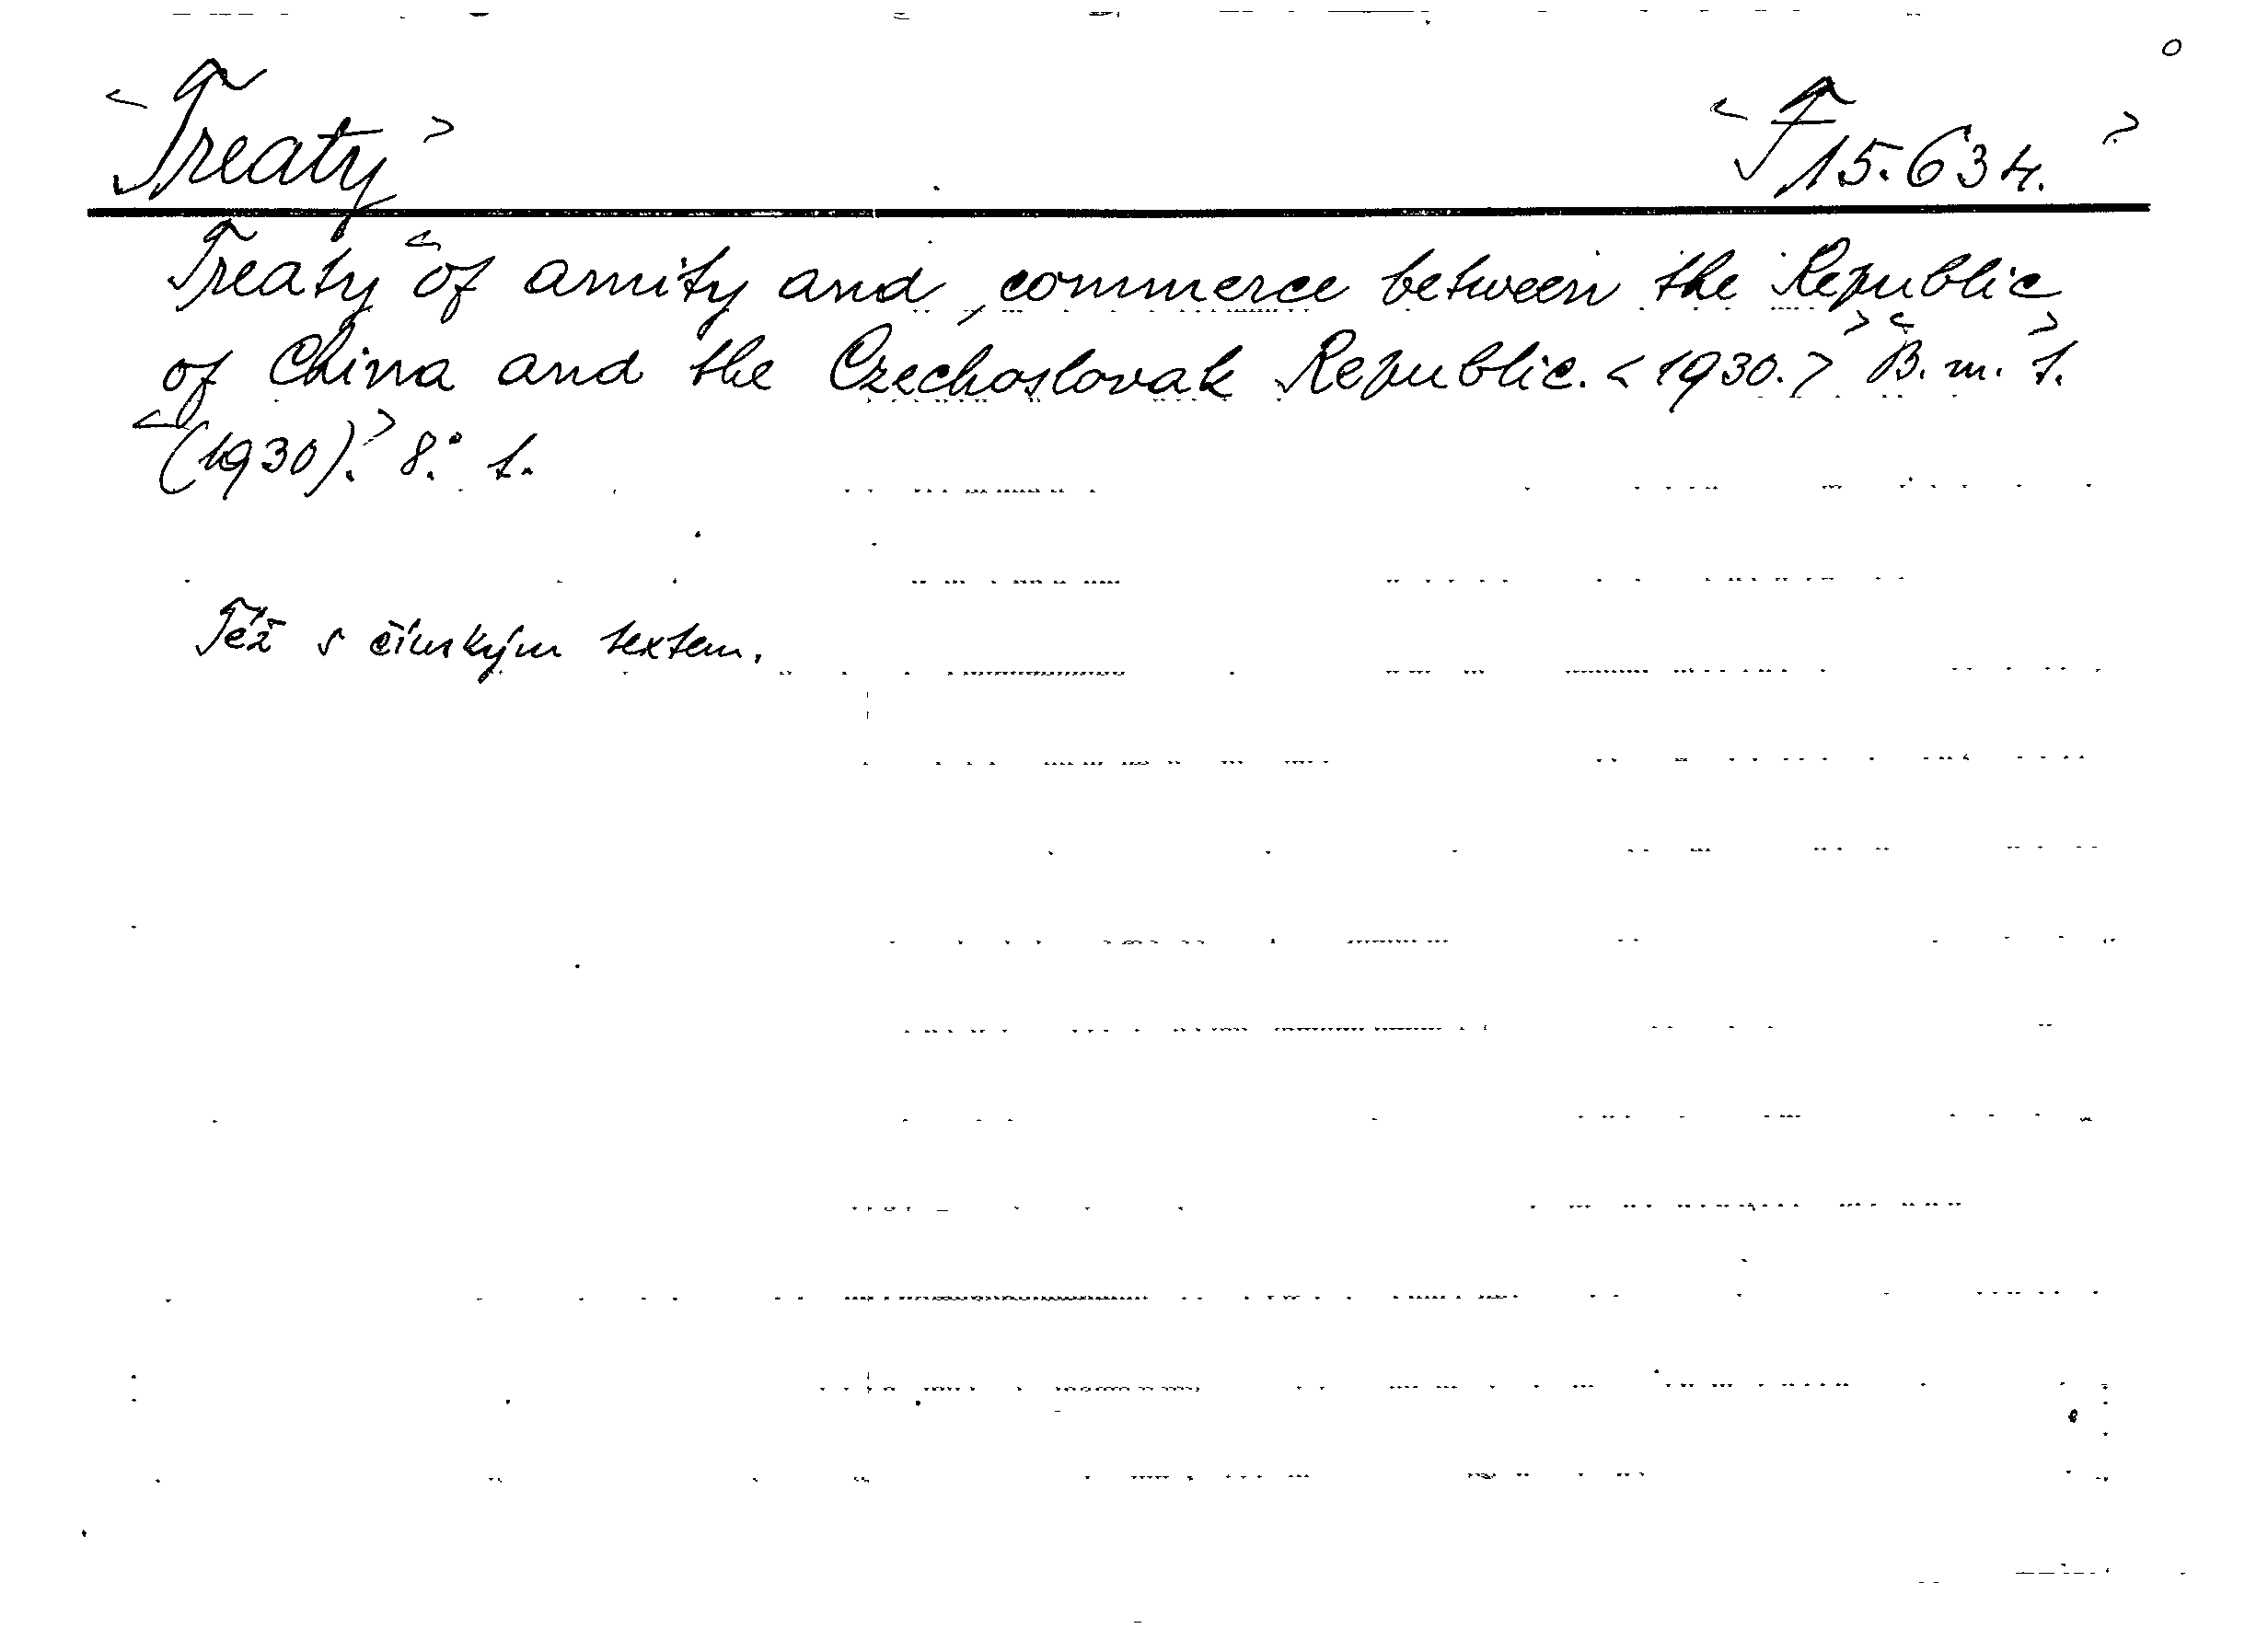 <Treaty> <F 15.634.>
Treaty <of amity and commerce between the Republic
of China and the Czechoslovak Republic. <1930.>> <B. m. t.>
<(1930).> 8.° t.
Též s čínským textem.